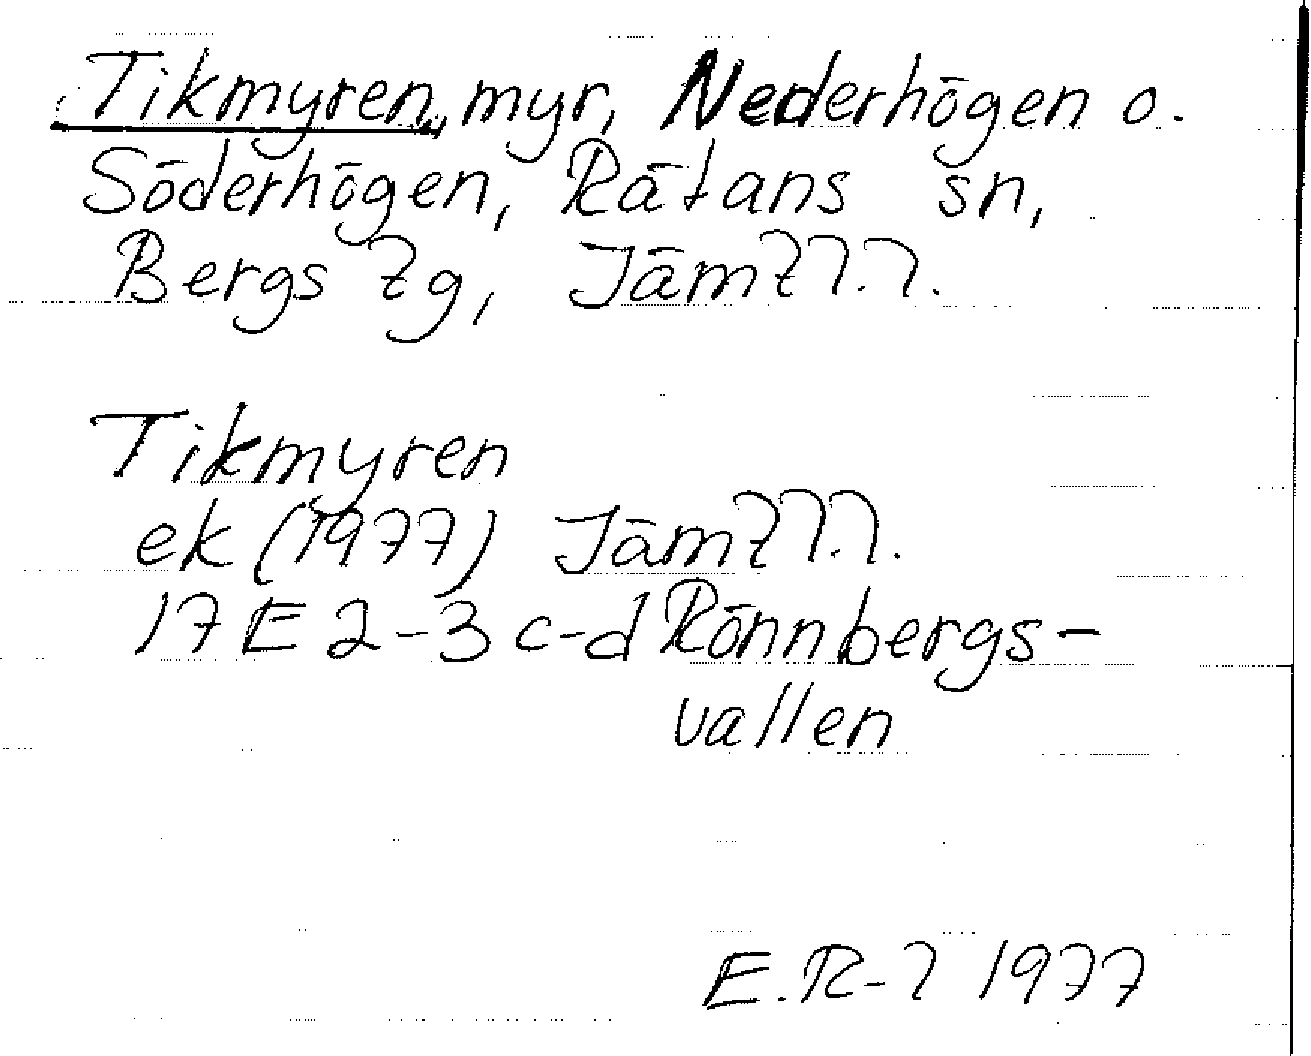 Tikmyren, myr, Nederhögen o.
Söderhögen, Rätans sn,
Bergs tg, Jämtl.l.
Tikmyren
ek (1977) Jämtl.l.
17 E 2-3 c-d Rönnbergs-
vallen
E.R-l 1977